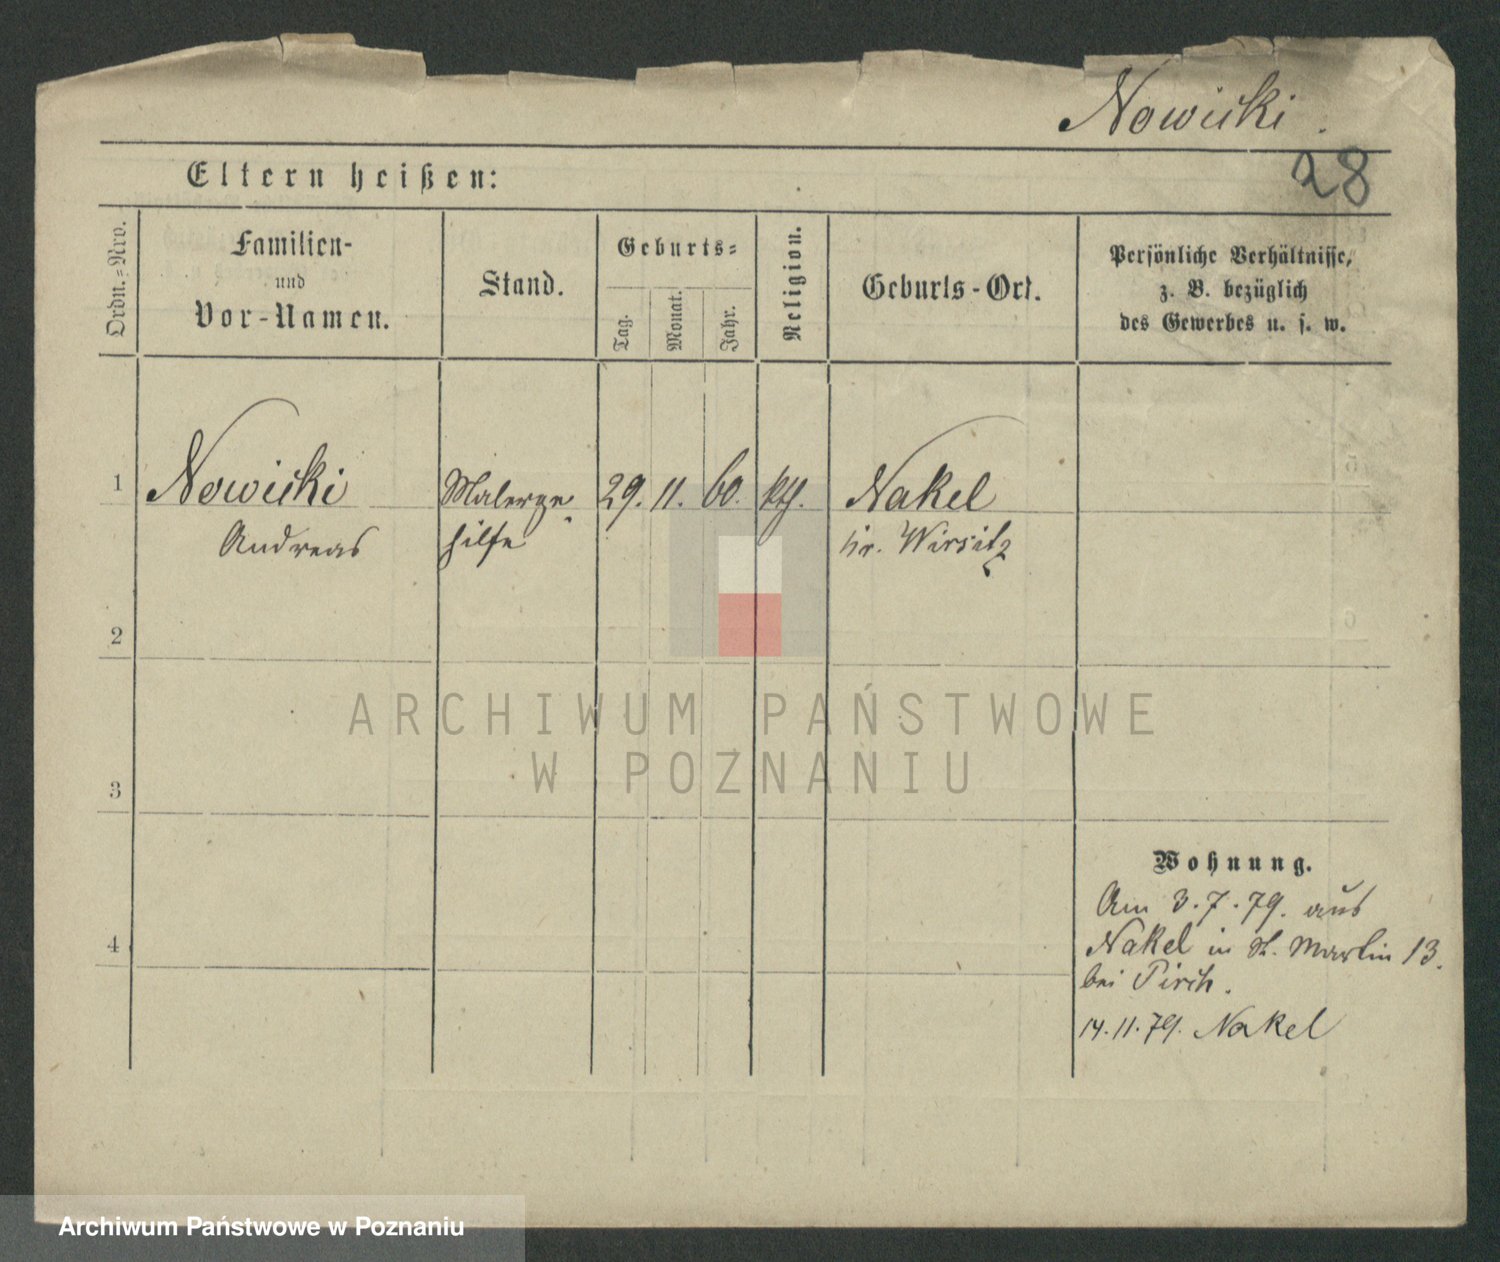 Nowicki.
28
Eltern heißen:
Ordn.=Nro.
Familien-
und
Vor-Namen.
Stand.
Geburts=
Tag.
Monat.
Jahr.
Religion.
Geburts-Ort.
Persönliche Verhältnisse,
z. B. bezüglich
des Gewerbes u. s. w.
1
Nowicki Malerge 29. 11. 60. kth. Nakel
Andreas hilfe Kr. Wirsitz
2
ARCHIWUM PAŃSTWOWE
W POZNANIU
3
Wohnung.
Am 3.7.79. aus
4
Nakel in St. Martin 13.
bei Pirch.
14.11.79. Nakel
Archiwum Państwowe w Poznaniu